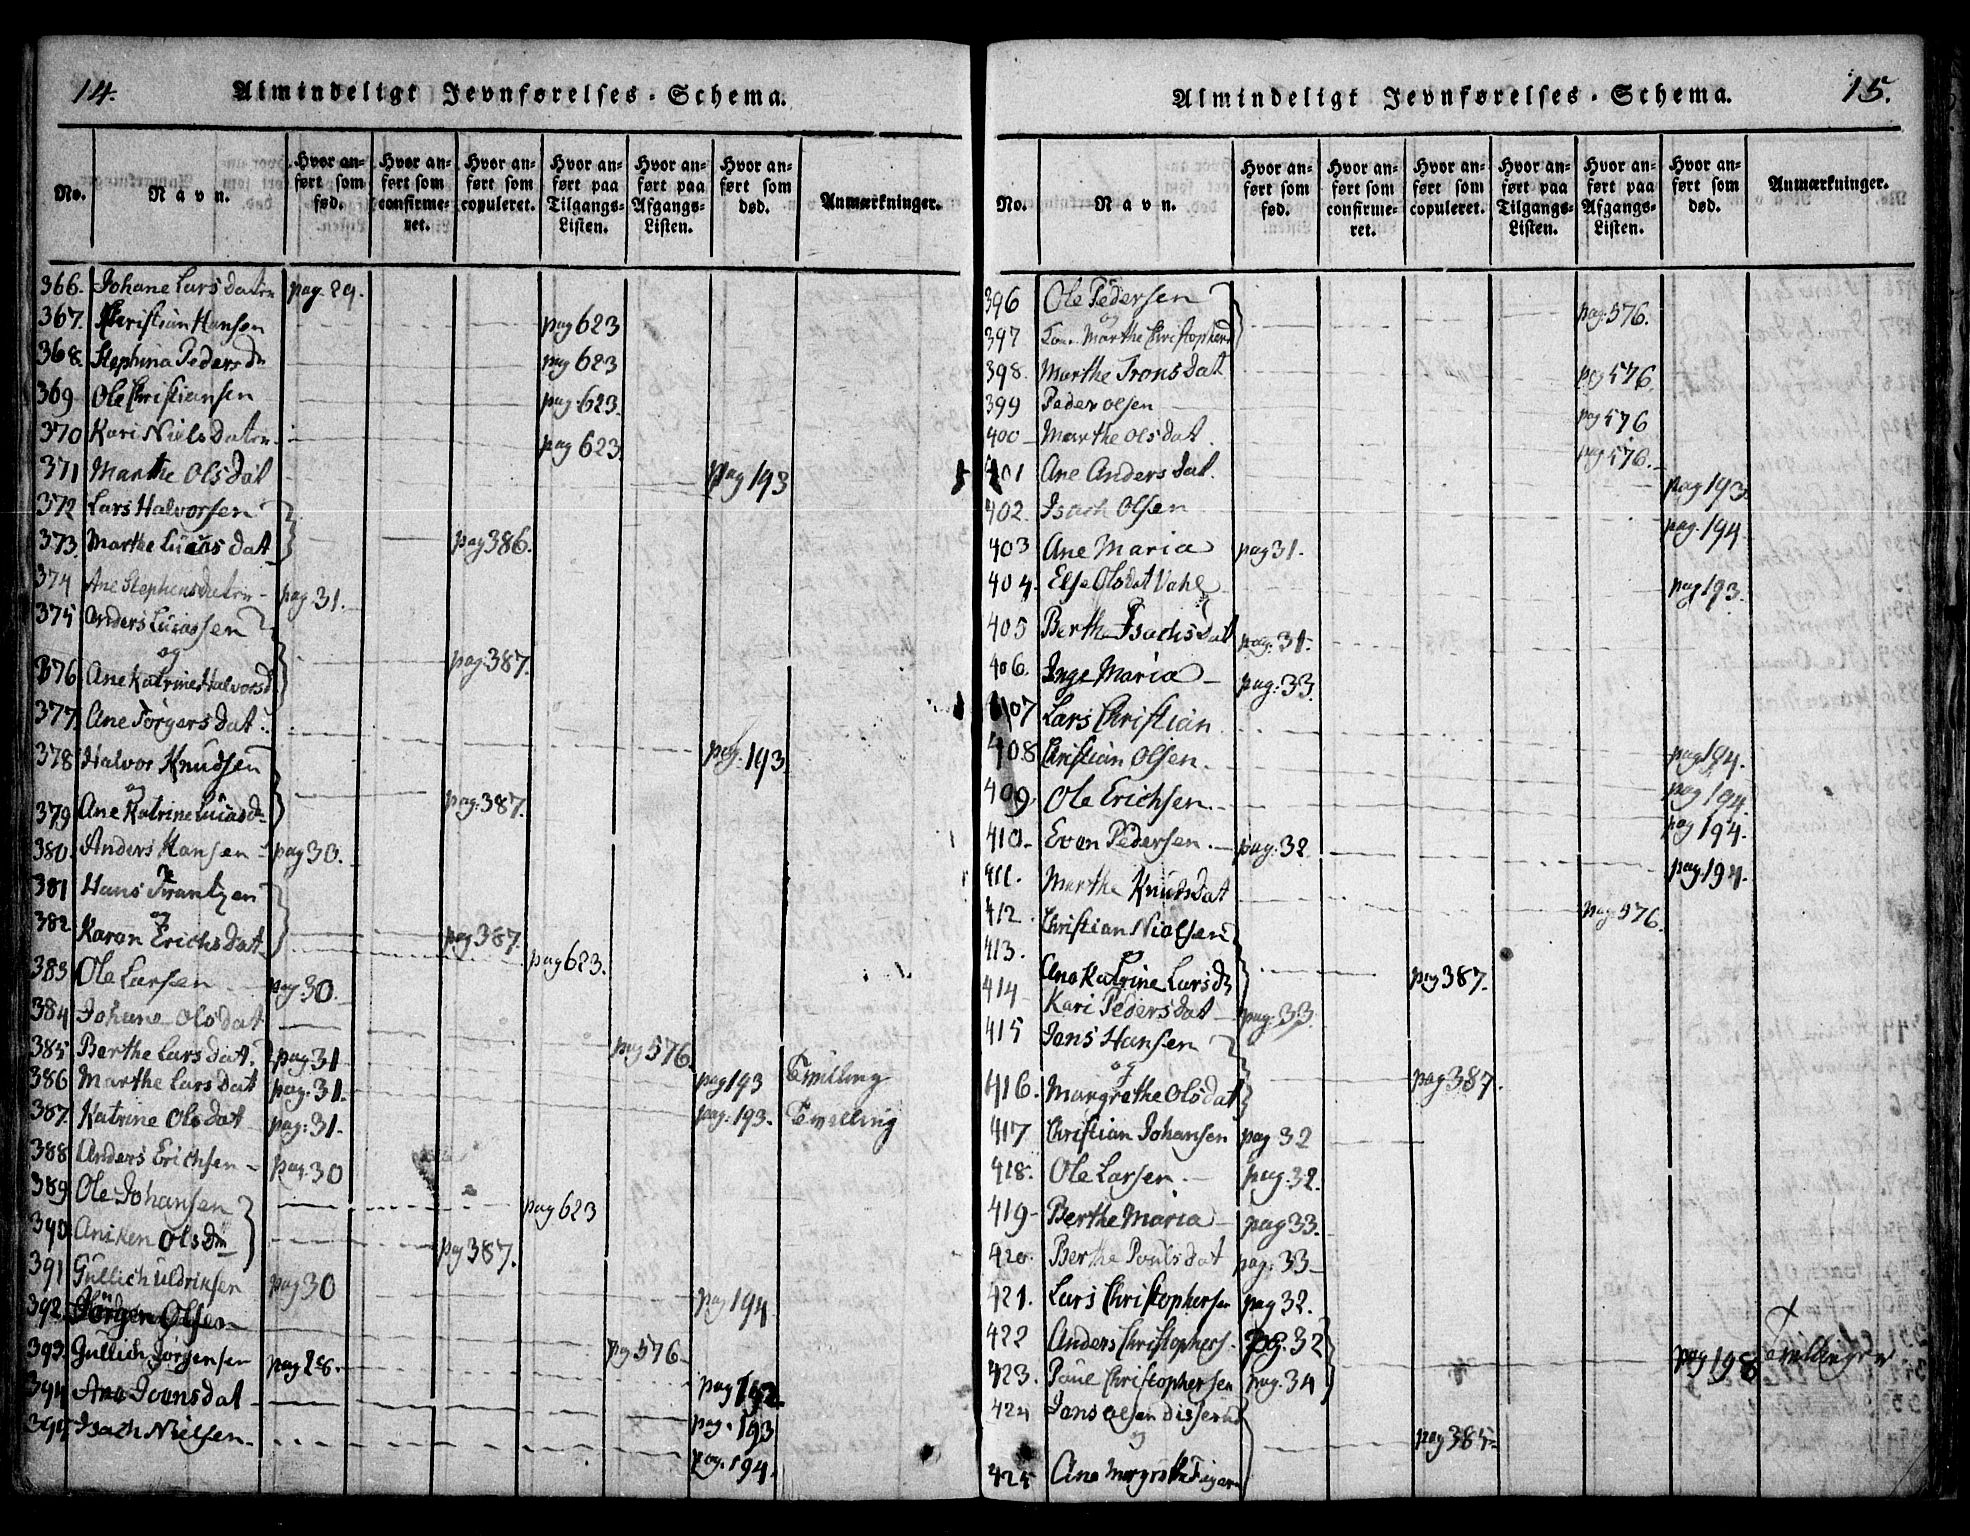 14.
Almindeligt Jevnførelses-Schema.
No.
Navn.
Hvor anført som fød.
Hvor anført som confirmeret.
Hvor anført som copuleret.
Hvor anført paa Tilgangs-Listen.
Hvor anført paa Afgangs-Listen.
Hvor anført som død.
Anmærkninger.
366. Johane Larsdatn pag. 29.
367. Christian Hansen pag 623
368. Stephina Peders dn pag 623
369 Ole Christiansen pag. 623.
370 Kari Niels datn pag 623.
371 Marthe Olsdat pag 193
372 Lars Halvorsen
373. Marthe Lucas dat pag 386.
374 Ane Stephensdatn pag 31.
375 Anders Lucassen
og
376 Ane Katrine Halvorsd pag 387.
377. Ane Jørgersdat pag. 193.
378 Halvor Knudsen
og
379 Ane Katrine Lucasd pag. 387.
380. Anders Hansen pag 30.
381 Hans Frantzen
og
382 Karen Erichsdat pag 387. pag 623.
383 Ole Larsen pag 30.
384 Johane Olsdat pag 576.
385 Berthe Larsdat. pag 31 pag 193 Tvilling
386 Marthe Larsdat pag. 31. pag. 193. Tvilling
387. Katrine Olsdat pag. 31.
388 Anders Erichsen pag. 30
389 Ole Johansen pag 623
390 Aniken Olsdn pag 387.
391 Gullich Uldriksen pag 30 pag 194
392 Jørgen Olsen pag 576
393. Gullich Jørgensen pag 28. pag 192.
394 Ane Joensdat pag. 193
395 Isach Nielsen pag. 194.
15.
Almindeligt Jevnførelses-Schema.
No.
Navn.
Hvor anført som fød.
Hvor anført som confirmeret.
Hvor anført som copuleret.
Hvor anført paa Tilgangs-Listen.
Hvor anført paa Afgangs-Listen.
Hvor anført som død.
Anmærkninger.
396 Ole Pedersen
og
397 Marthe Christophersd pag. 576.
398. Marthe Tronsdat pag 576.
399 Peder Olsen pag 576
400 Marthe Olsdat pag 576.
401 Ane Andersdat. pag 193.
402. Isach Olsen pag. 194
403 Ane Maria pag 31.
404. Else Olsdat Vahl pag 193.
405 Berthe Isachsdat pag. 31.
406. Inge Maria pag. 33.
407 Lars Christian pag 194.
408 Christian Olsen. pag 194.
409. Ole Erichsen pag 194.
410. Even Pedersen. pag. 32 pag. 194.
411. Marthe Knudsdat pag. 576.
412. Christian Nielsen
og
413. Ane Katrine Larsdn pag 387.
414 Kari Pedersdat pag. 33.
415 Jens Hansen
og
416. Margrethe Olsdat pag 387.
417 Christian Johansen pag 32
418. Ole Larsen. pag. 32.
419 Berthe Maria pag 33.
420. Berthe Poulsdat pag. 33
421. Lars Christophersen pag 32.
422 Anders Christophers. pag. 32 pag 198
423. Poue Christophersen pag. 34
424 Jens Olsen Disserud
og
425 Ane Margrethe pag 385.